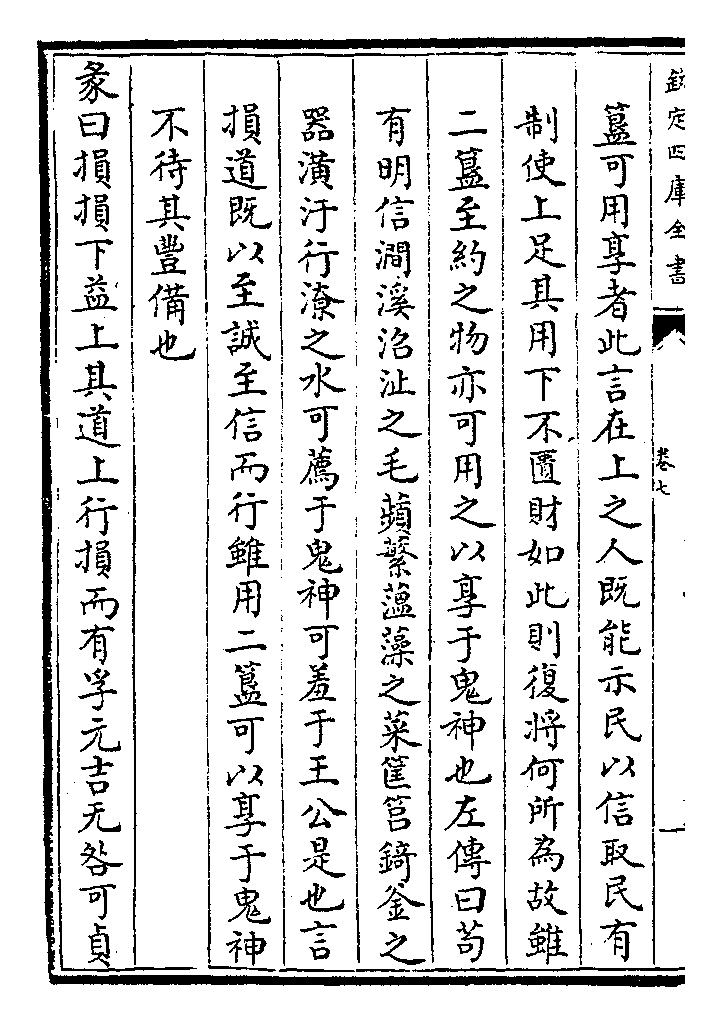 欽定四庫全書
卷七
一
簋可用享者此言在上之人既能示民以信取民有
制使上足其用下不匱財如此則復將何所為故雖
二簋至約之物亦可用之以享于鬼神也左傳曰茍
有明信澗溪沼沚之毛蘋蘩薀藻之菜筐筥錡釜之
器潢汙行潦之水可薦于鬼神可羞于王公是也言
損道既以至誠至信而行雖用二簋可以享于鬼神
不待其豐備也
彖曰損損下益上其道上行損而有孚元吉无咎可貞